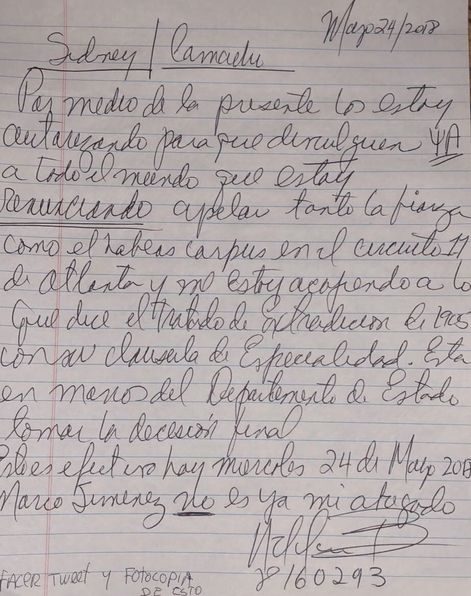 Mayo 24/2018
Sidney / Camaelu
Por medio de la presente los estoy
autorizando para que divulguen YA
a todo el mundo que estoy
renunciando apelar tanto la fianza
como el habeas corpus en el circuito 11
de Atlanta y me estoy acogiendo a lo
que dice el tratado de Extradicion de 1905
con su clausula de Especialidad. Esta
en manos del Departamento de Estado
tomar la decision final
Esto es efectivo hoy miercoles 24 de Mayo 2018
Marco Jimenez no es ya mi abogado
160293
HACER TWEET Y FOTOCOPIA
DE ESTO